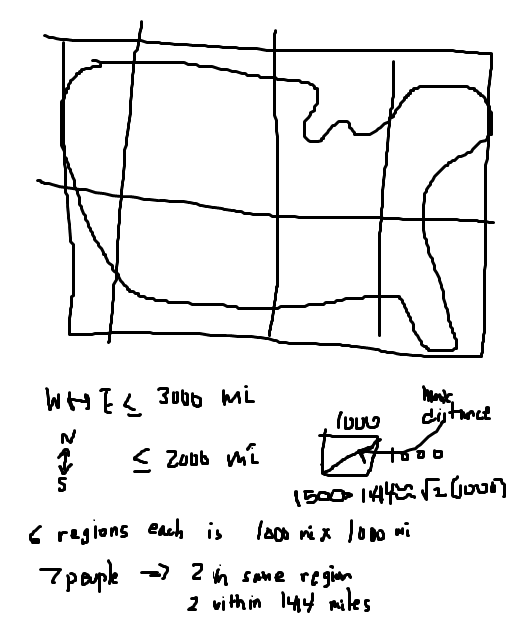 W ↔ E ≤ 3000 mi
N
↕ ≤ 2000 mi
S
1000
max
distance
1500 > 1414 ≈ √2 (1000)
6 regions each is 1000 mi x 1000 mi
7 people → 2 in same region
2 within 1414 miles